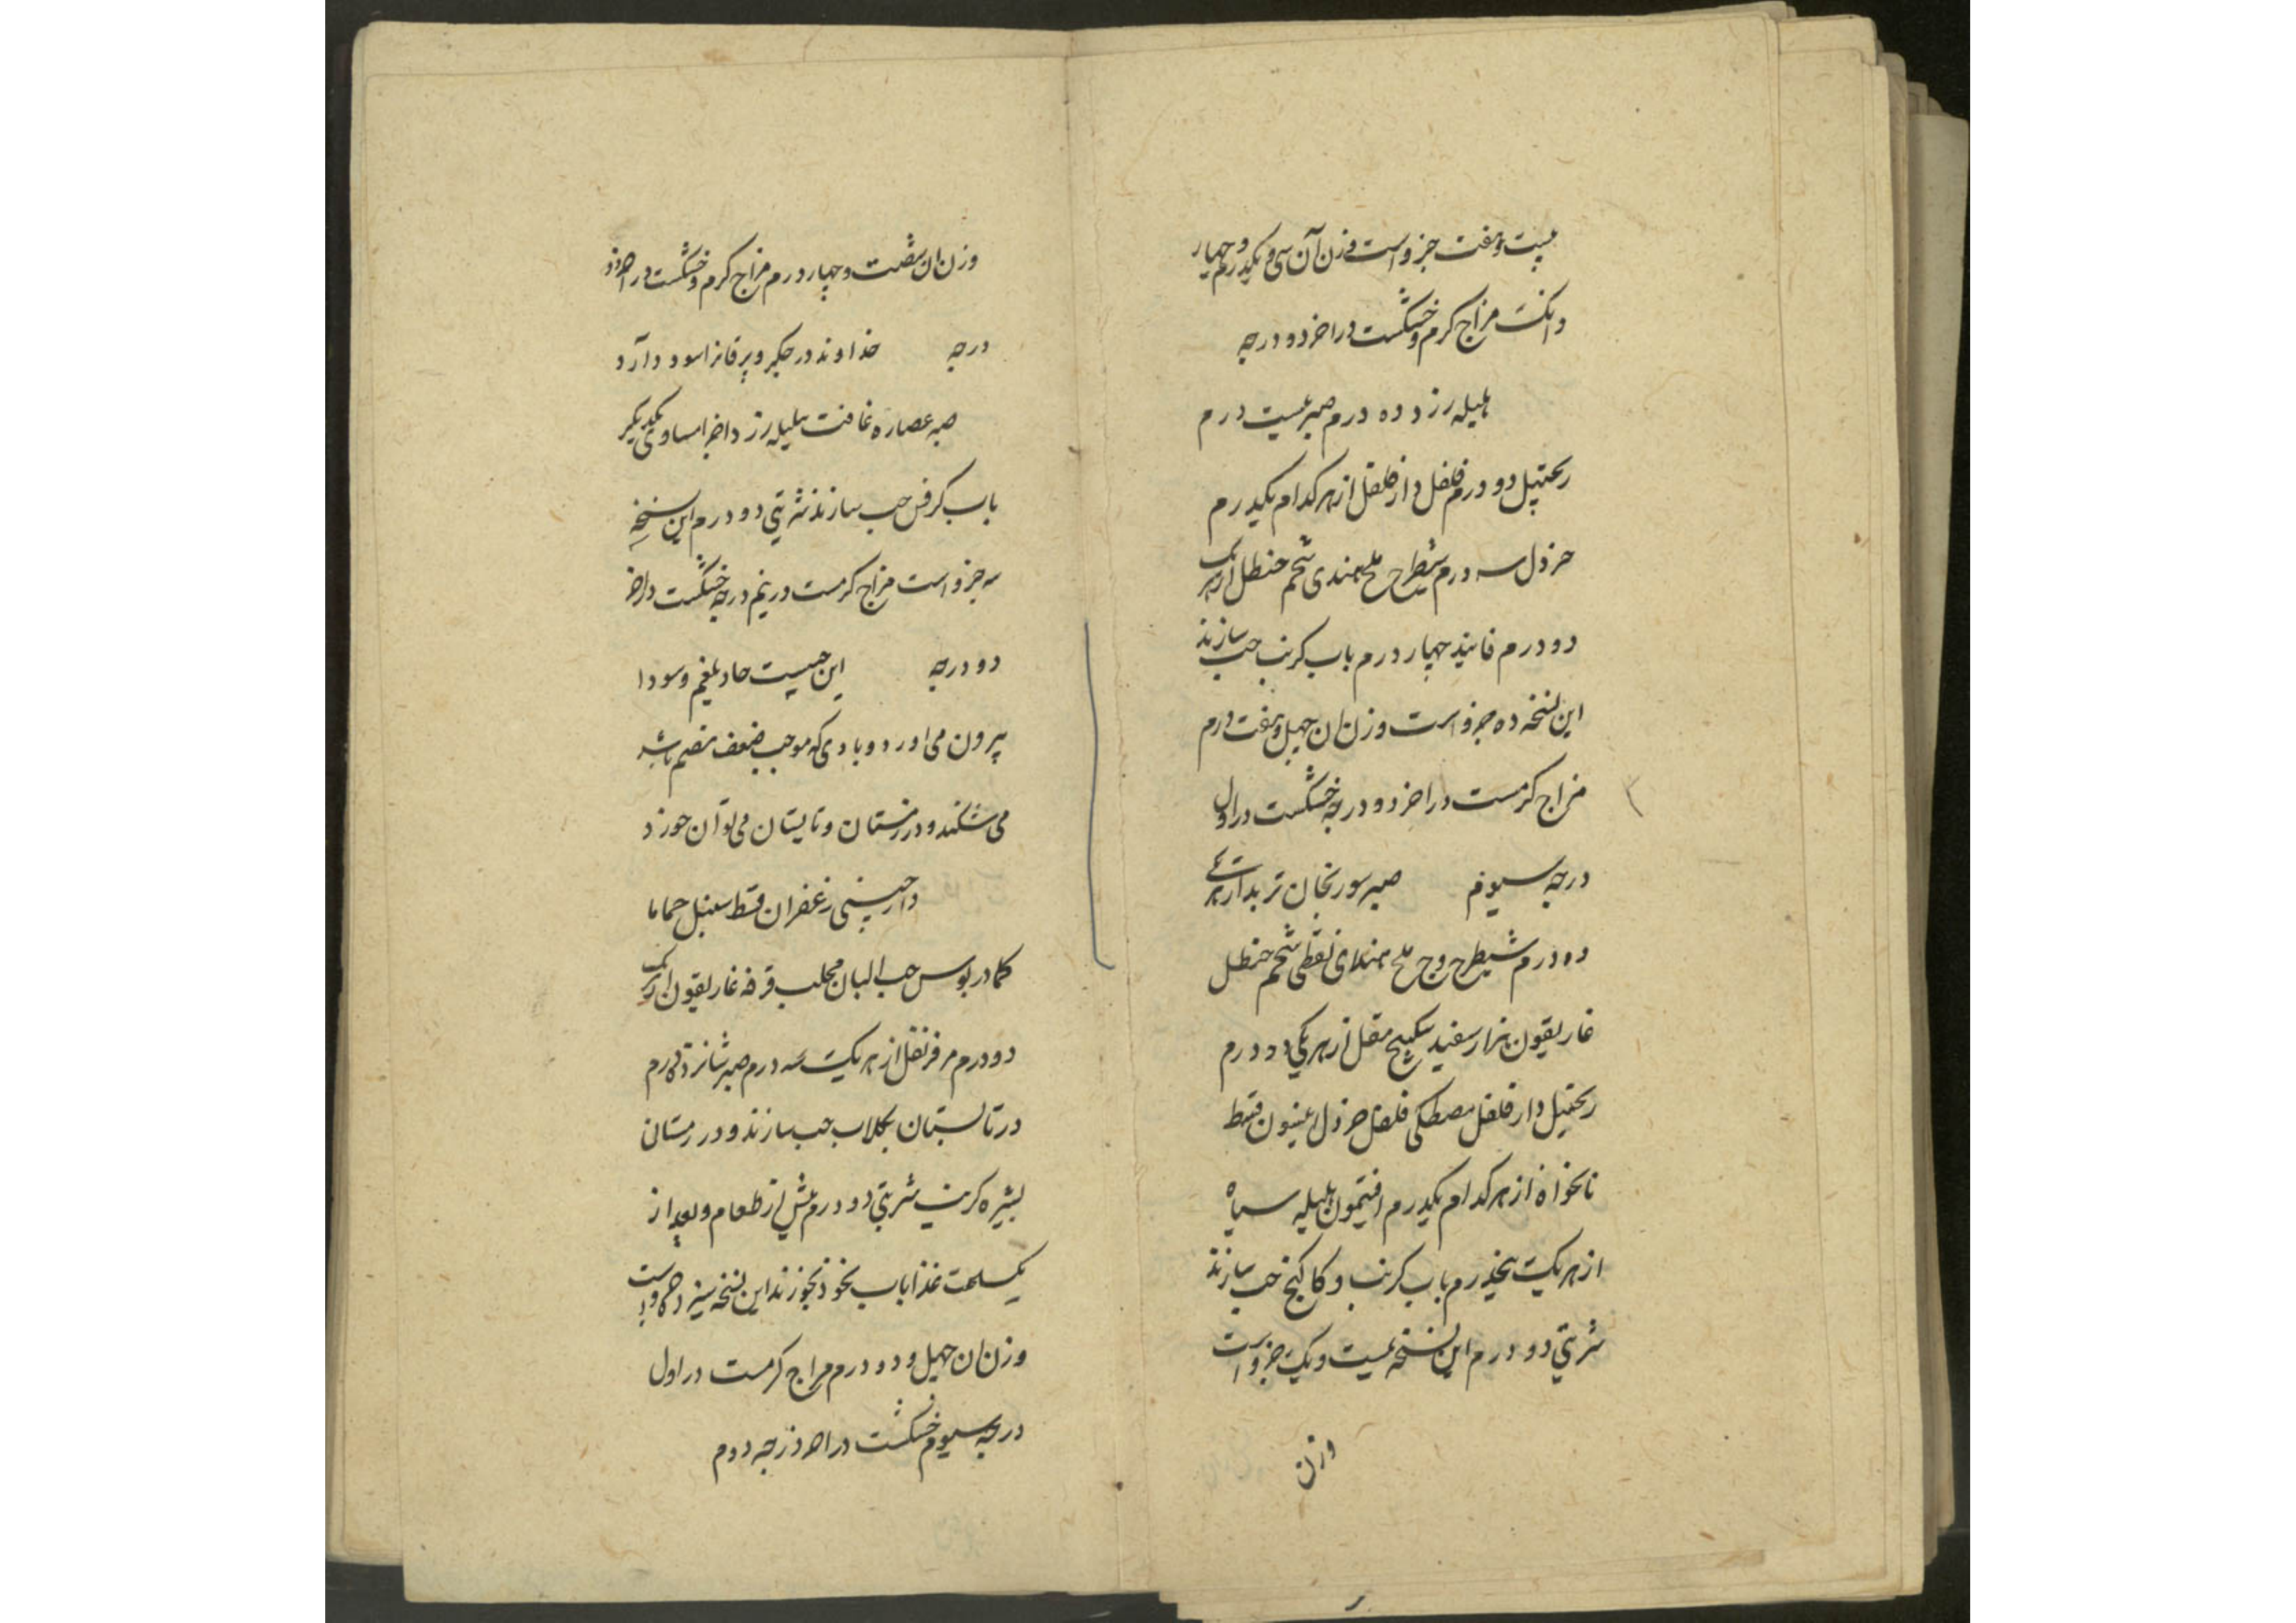 بیست وهفت جزواست وزن آن سی ویکدرم وچهار
دانکست مزاج کرم وخشکست دراخر دو درجه
هلیله زرد ده درم صبر بیست درم
زنجبیل دو درم فلفل دار فلفل از هر کدام یکدرم
خردل سه درم شیطرج ملح هندی شحم حنظل از هر یک
دو درم فانیذ چهار درم باب کرنب حب سازند
این نسخه ده جزواست وزن ان چهل وهفت درم
مزاج کرمست دراخر دو درجه خشکست در اول
درجه سیوم صبر سورنجان تربد از هر یکی
ده درم شیطرج وج ملح هندی نفطی شحم حنظل
غاریقون هزار سفید سکبینج مقل از هر یکی دو درم
زنجبیل دار فلفل مصطکی فلفل خردل انیسون قسط
نانخواه از هر کدام یکدرم افتیمون هلیله سیاه
از هر یکی پنجدرم باب کرنب و کاکنج حب سازند
شربتی دو درم این نسخه بیست ویک جزو است
وزن
وزن ان شصت وچهار درم مزاج کرم وخشکست در اخر دو
درجه خداوند درد جکر ویرقانرا سود دارد
صبر عصاره غافت هلیله زرد اجزا مساوی یکدیگر
باب کرفس حب سازند شربتی دو درم این نسخه
سه جزواست مزاج کرمست در نیم درجه خشکست در اخر
دو درجه این حبیست حاد بلغم وسودا
بیرون می اورد وبادی که موجب ضعف هضم باشد
می شکند ودر زمستان وتابستان می توان خورد
دارچینی زعفران قسط سنبل حماما
کمادریوس حب البان محلب قرفه غاریقون از هر یک
دو درم مر قرنفل از هر یکت سه درم صبر شانزده درم
در تابستان بکلاب حب سازند ودر زمستان
بشیره کرنب شربتی دو درم پیش از طعام وبعد از
یکساعت غذا باب نخود بخورند این نسخه سیزده جزو است
وزن ان چهل و دو درم مزاج کرمست در اول
درجه سیوم خشکست در اخر درجه دوم